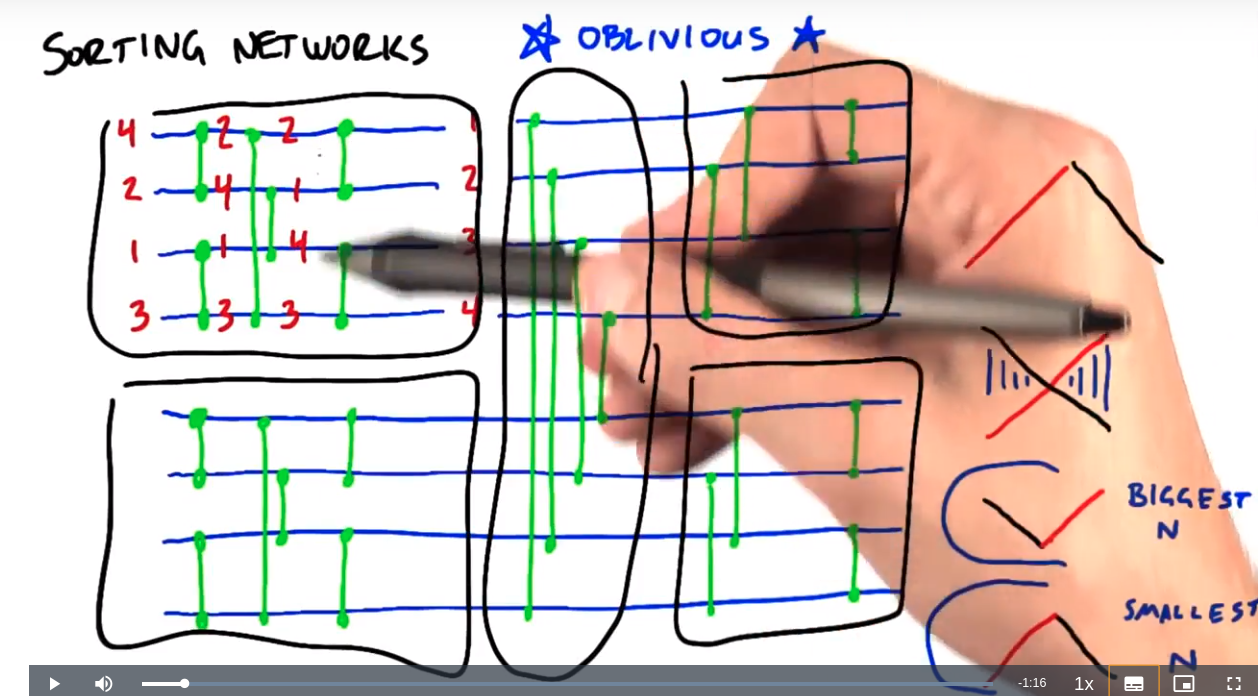 SORTING NETWORKS
☆ OBLIVIOUS ★
4 2 2 1
2 4 1 2
1 1 4 3
3 3 3 4
BIGGEST
N
SMALLEST
N
-1:16 1x